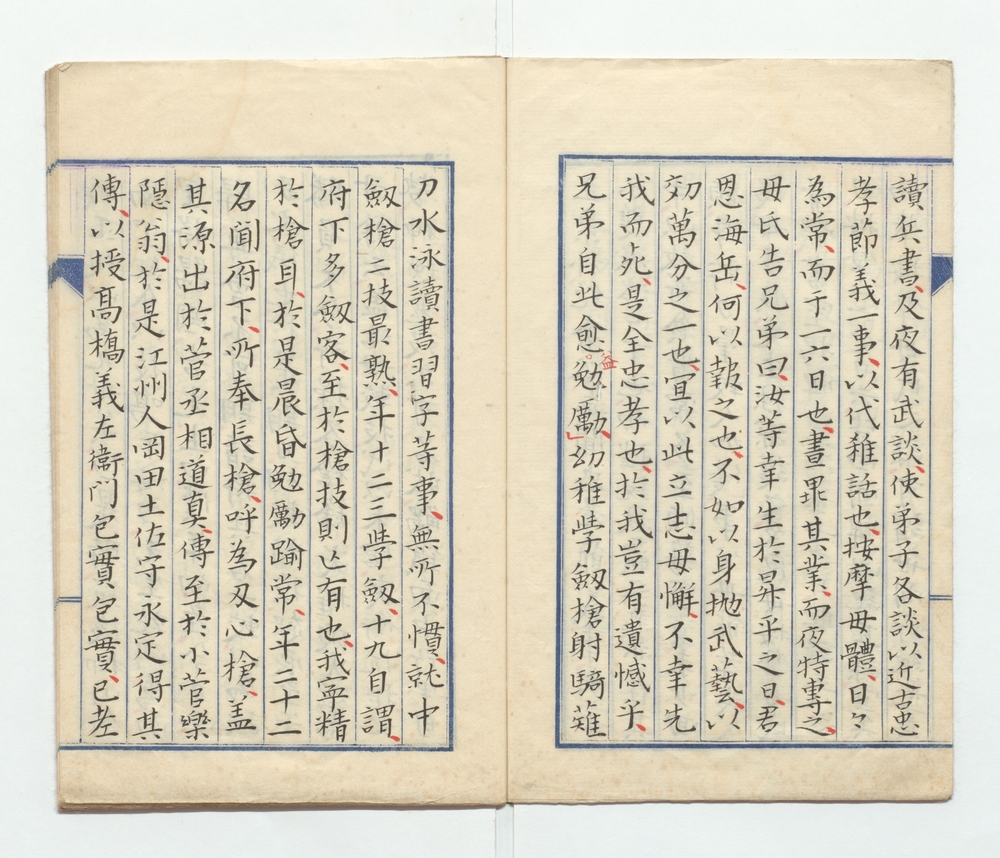 讀兵書、及夜有武談、使弟子各談以近古忠
孝節義一事、以代稚話也、按摩母體、日々
為常、而于一六日也、晝畢其業、而夜特專之、
母氏告兄弟曰、汝等幸生於昇平之日、君
恩海岳、何以報之也、不如以身抛武藝、以
効萬分之一也、宜以此立志毋懈、不幸先
我而死、是全忠孝也、於我豈有遺憾乎、
兄弟自此愈益勉勵、幼稚學劔槍射騎薙
刀水泳讀書習字等事、無所不慣、就中
劔槍二技最熟、年十二三學劔、十九自謂、
府下多劔客、至於槍技則亡有也、我寧精
於槍耳、於是晨昏勉勵踰常、年二十二
名聞府下、所奉長槍、呼為刄心槍、盖
其源出於菅丞相道真、傳至於小菅樂
隱翁、於是江州人岡田土佐守永定得其
傳、以授髙橋義左衞門包實包實、已老